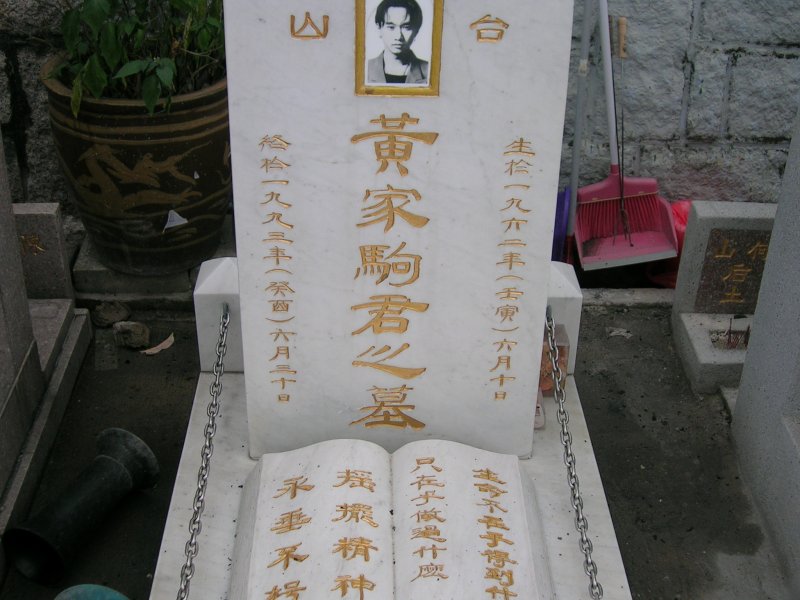 台山
生於一九六二年(壬寅)六月十日
黃家駒君之墓
終於一九九三年(癸酉)六月三十日
生命不在乎得到什
只在乎做過什麼
搖滾精神
永垂不朽